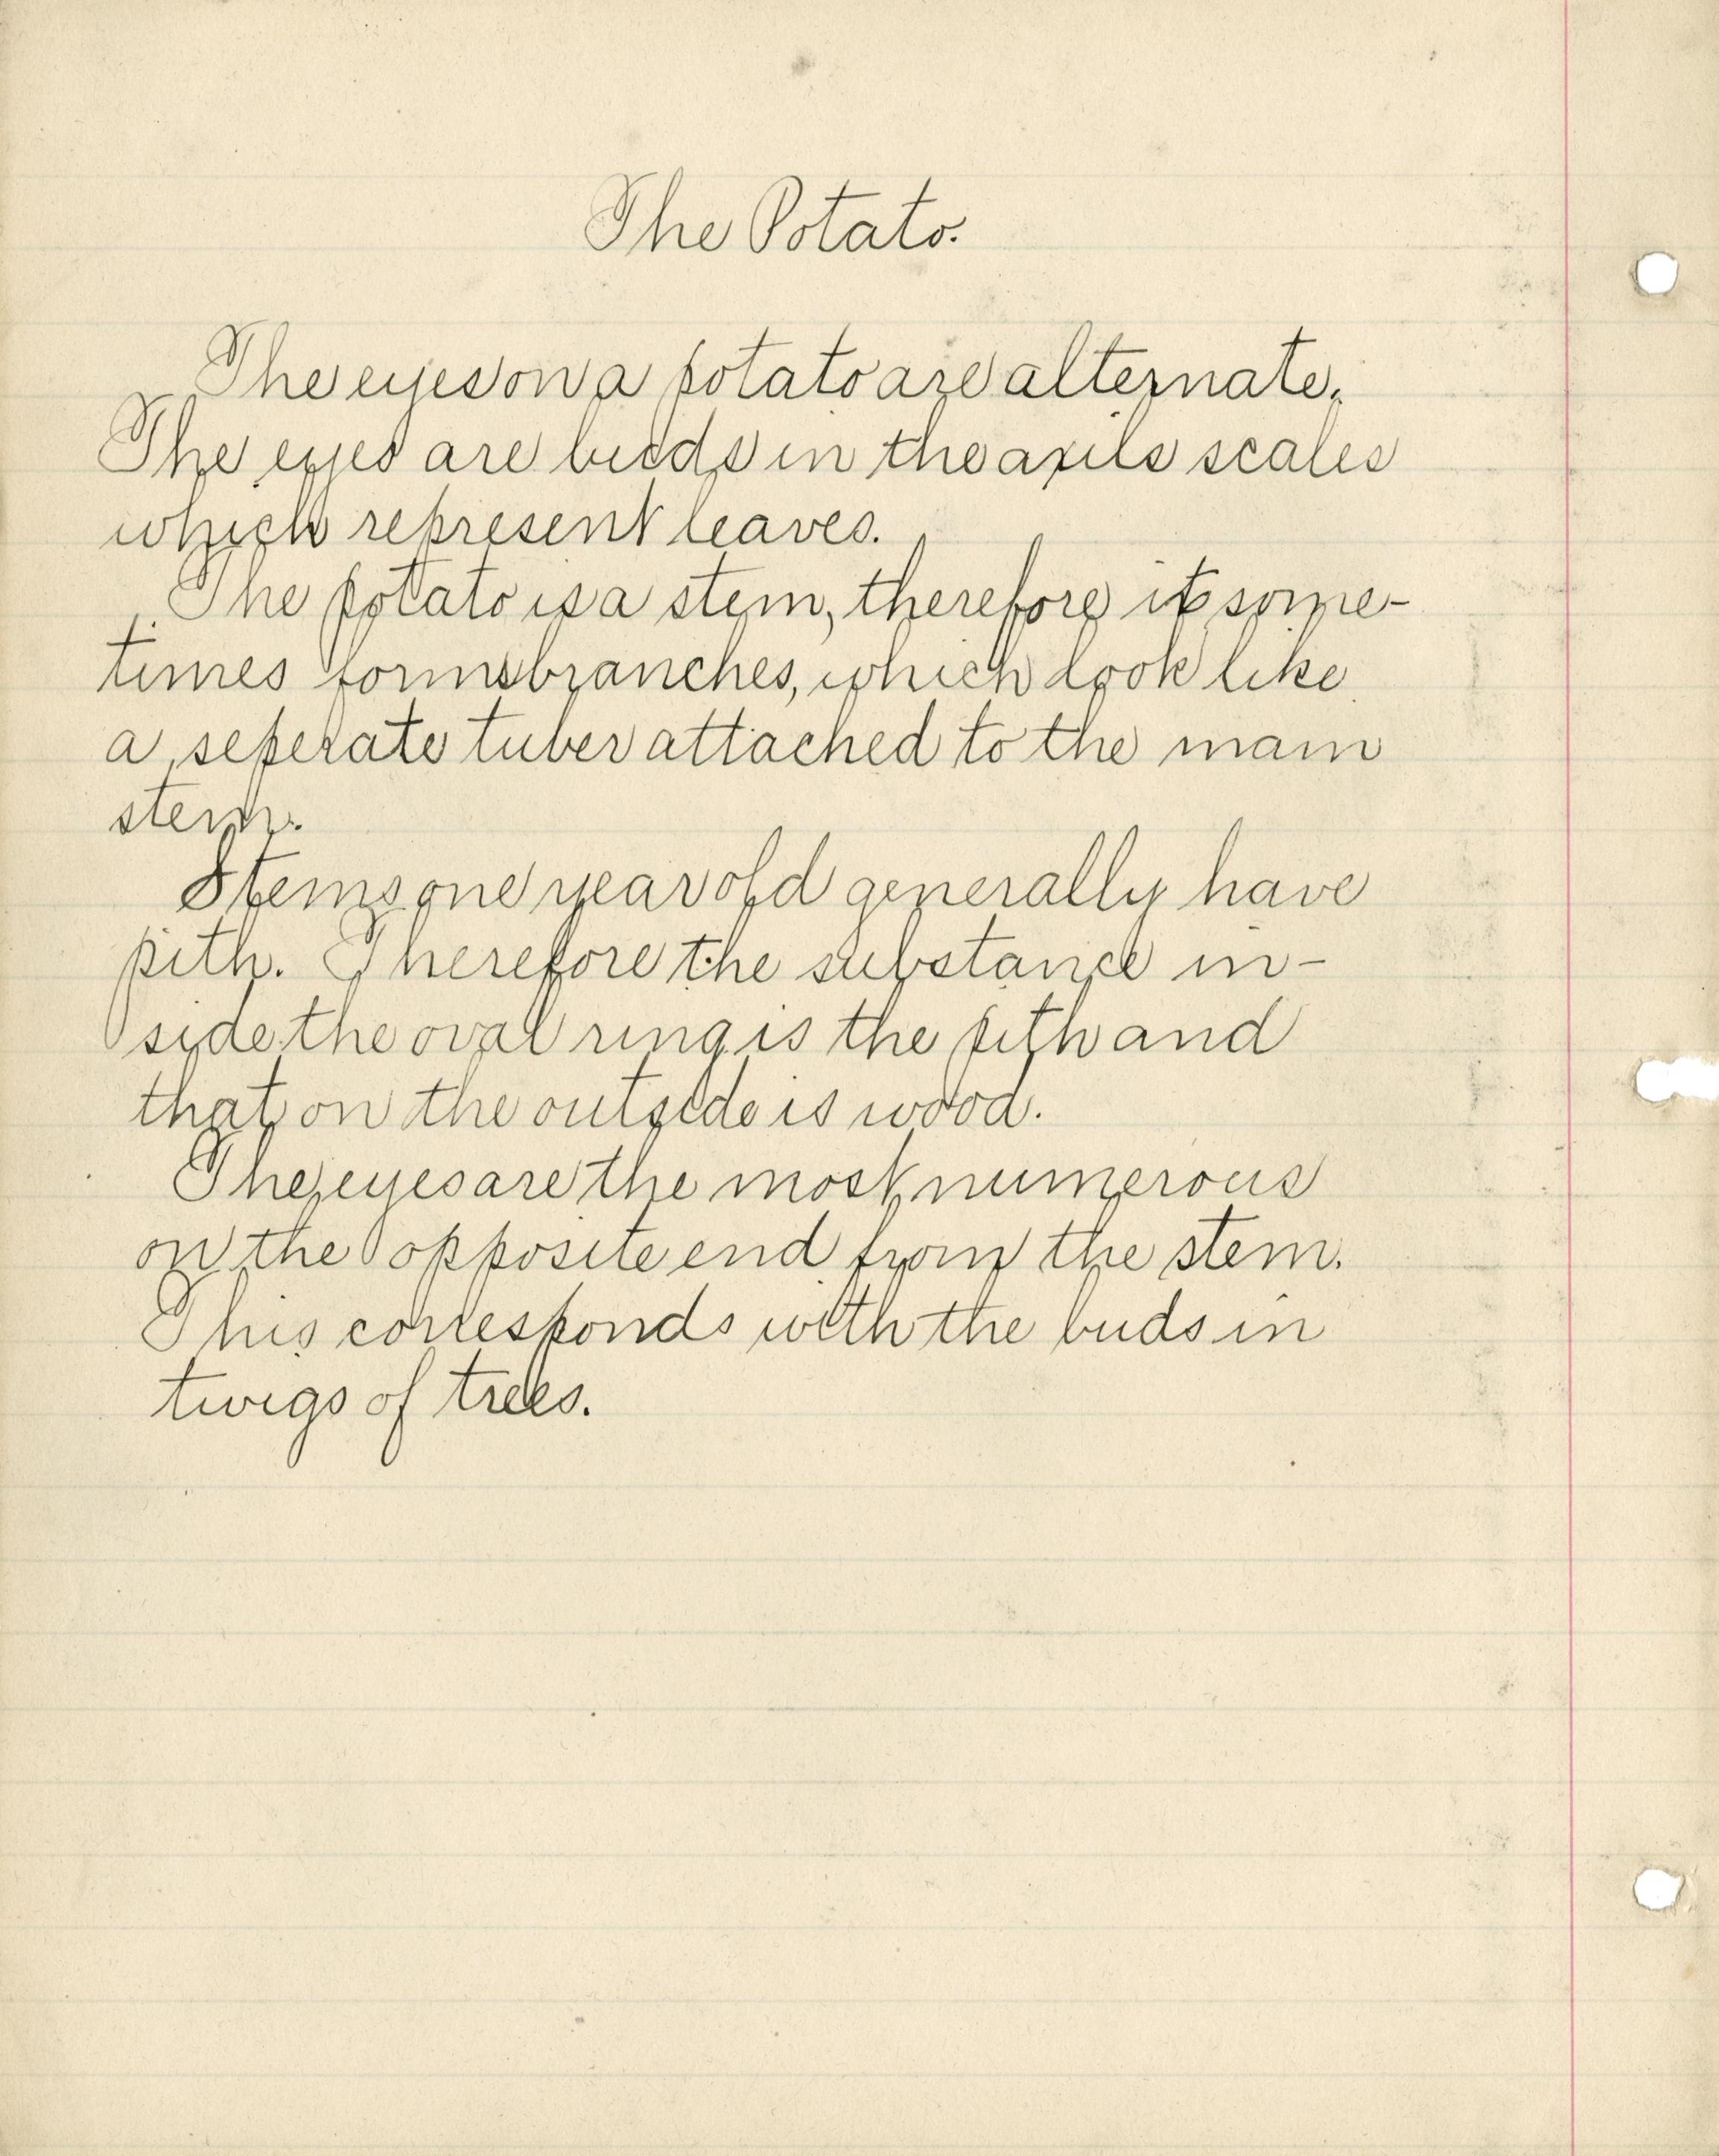 The Potato.
The eyes on a potato are alternate.
The eyes are buds in the axils scales
which represent leaves.
The potato is a stem, therefore it some-
times forms branches, which look like
a seperate tuber attached to the main
stem.
Stems one year old generally have
pith. Therefore the substance in-
side the oval ring is the pith and
that on the outside is wood.
The eyes are the most numerous
on the opposite end from the stem.
This corresponds with the buds in
twigs of trees.